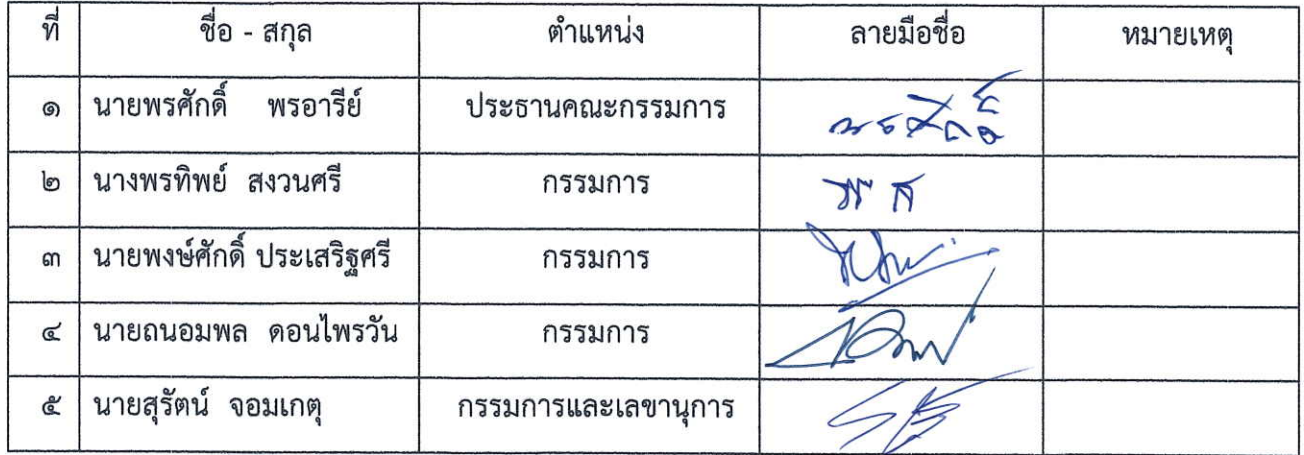 ที่ ชื่อ - สกุล ตำแหน่ง ลายมือชื่อ หมายเหตุ
๑ นายพรศักดิ์ พรอารีย์ ประธานคณะกรรมการ
๒ นางพรทิพย์ สงวนศรี กรรมการ
๓ นายพงษ์ศักดิ์ ประเสริฐศรี กรรมการ
๔ นายถนอมพล ดอนไพรวัน กรรมการ
๕ นายสุรัตน์ จอมเกตุ กรรมการและเลขานุการ